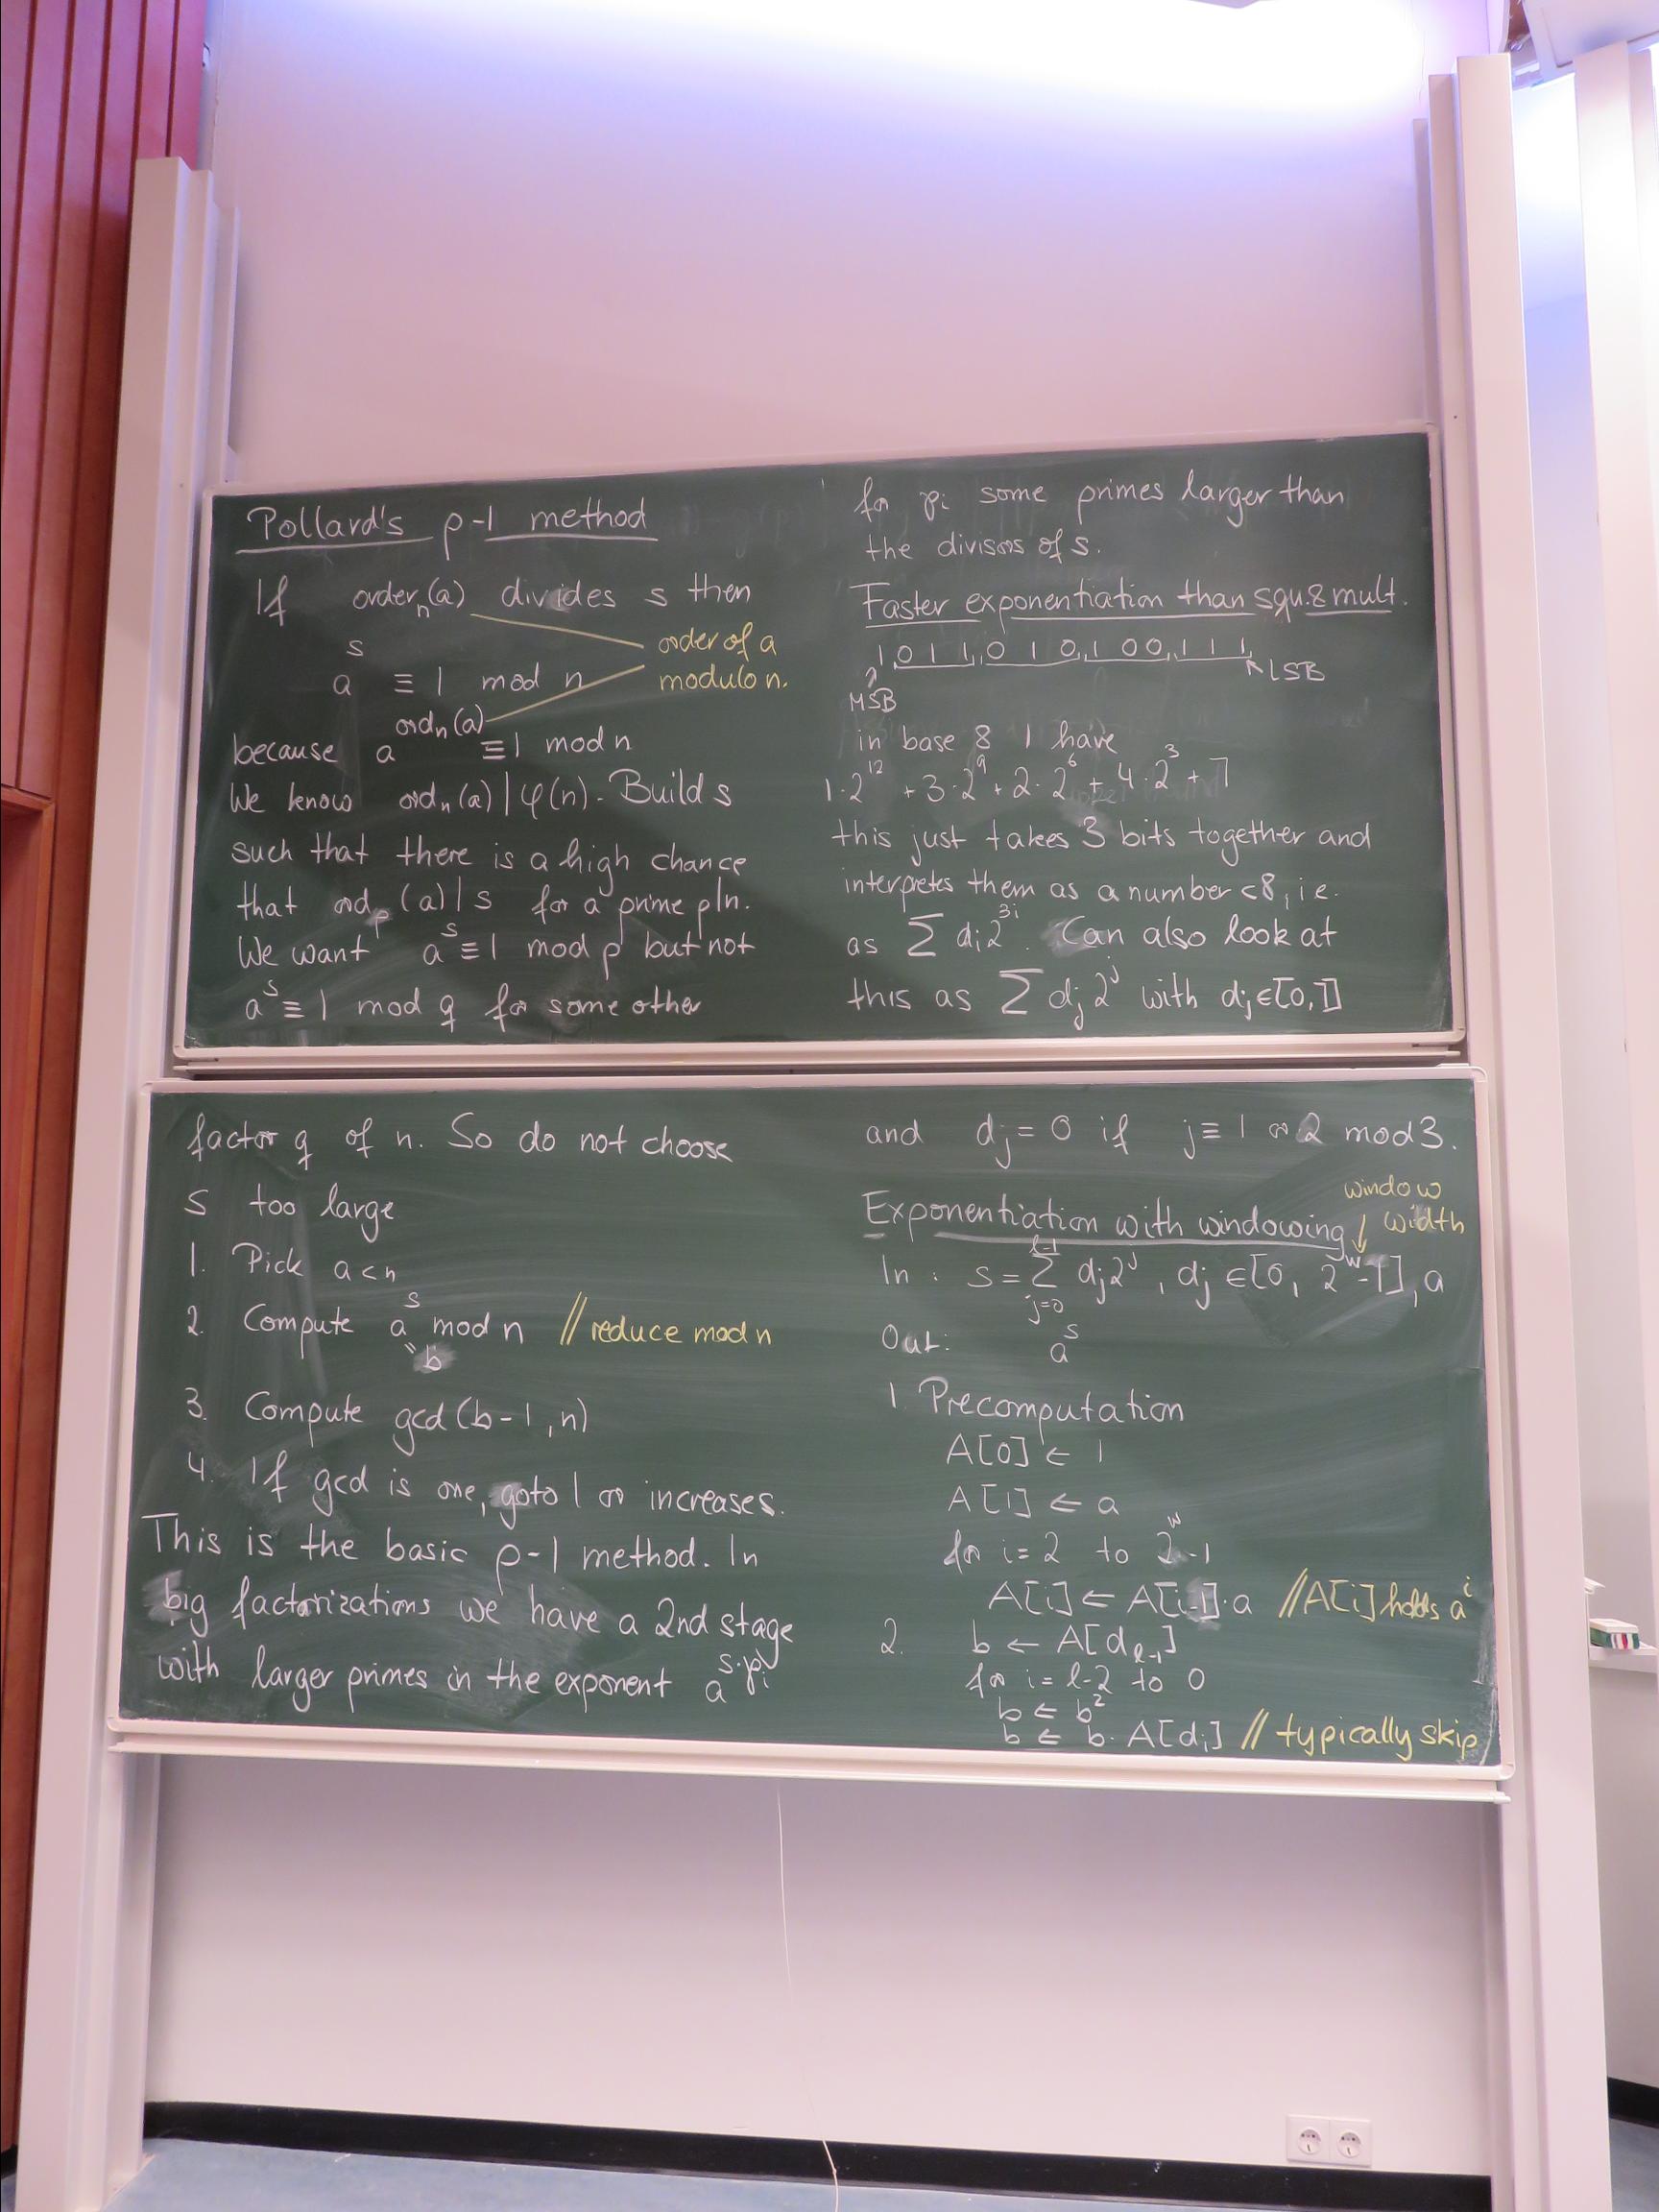 Pollard's p-1 method
If order_n(a) divides s then
a^s ≡ 1 mod n
order of a
modulo n.
because a^{ord_n(a)} ≡ 1 mod n
We know ord_n(a) | φ(n). Build s
such that there is a high chance
that ord_p(a) | s for a prime p|n.
We want a^s ≡ 1 mod p but not
a^s ≡ 1 mod q for some other
factor q of n. So do not choose
s too large
1. Pick a<n
2. Compute a^s mod n // reduce mod n
" b
3. Compute gcd(b-1, n)
4. If gcd is one, goto 1 or increase s.
This is the basic p-1 method. In
big factorizations we have a 2nd stage
with larger primes in the exponent a^{s·p_i}
for p_i some primes larger than
the divisors of s.
Faster exponentiation than squ. & mult.
1 0 1 1 0 1 0 1 0 0 1 1 1
↑ MSB
↖ LSB
in base 8 I have
1·2^12 + 3·2^9 + 2·2^6 + 4·2^3 + 7
this just takes 3 bits together and
interpretes them as a number <8, i.e.
as ∑ d_i 2^{3i}. Can also look at
this as ∑ d_j 2^j with d_j ∈ [0,7]
and d_j = 0 if j ≡ 1 or 2 mod 3.
Exponentiation with windowing
window
↓ width
In: s = ∑_{j=0}^{l-1} d_j 2^j, d_j ∈ [0, 2^w-1], a
Out: a^s
1. Precomputation
A[0] ← 1
A[1] ← a
for i=2 to 2^w-1
A[i] ← A[i-1]·a // A[i] holds a^i
2. b ← A[d_{l-1}]
for i = l-2 to 0
b ← b^2
b ← b·A[d_i] // typically skip